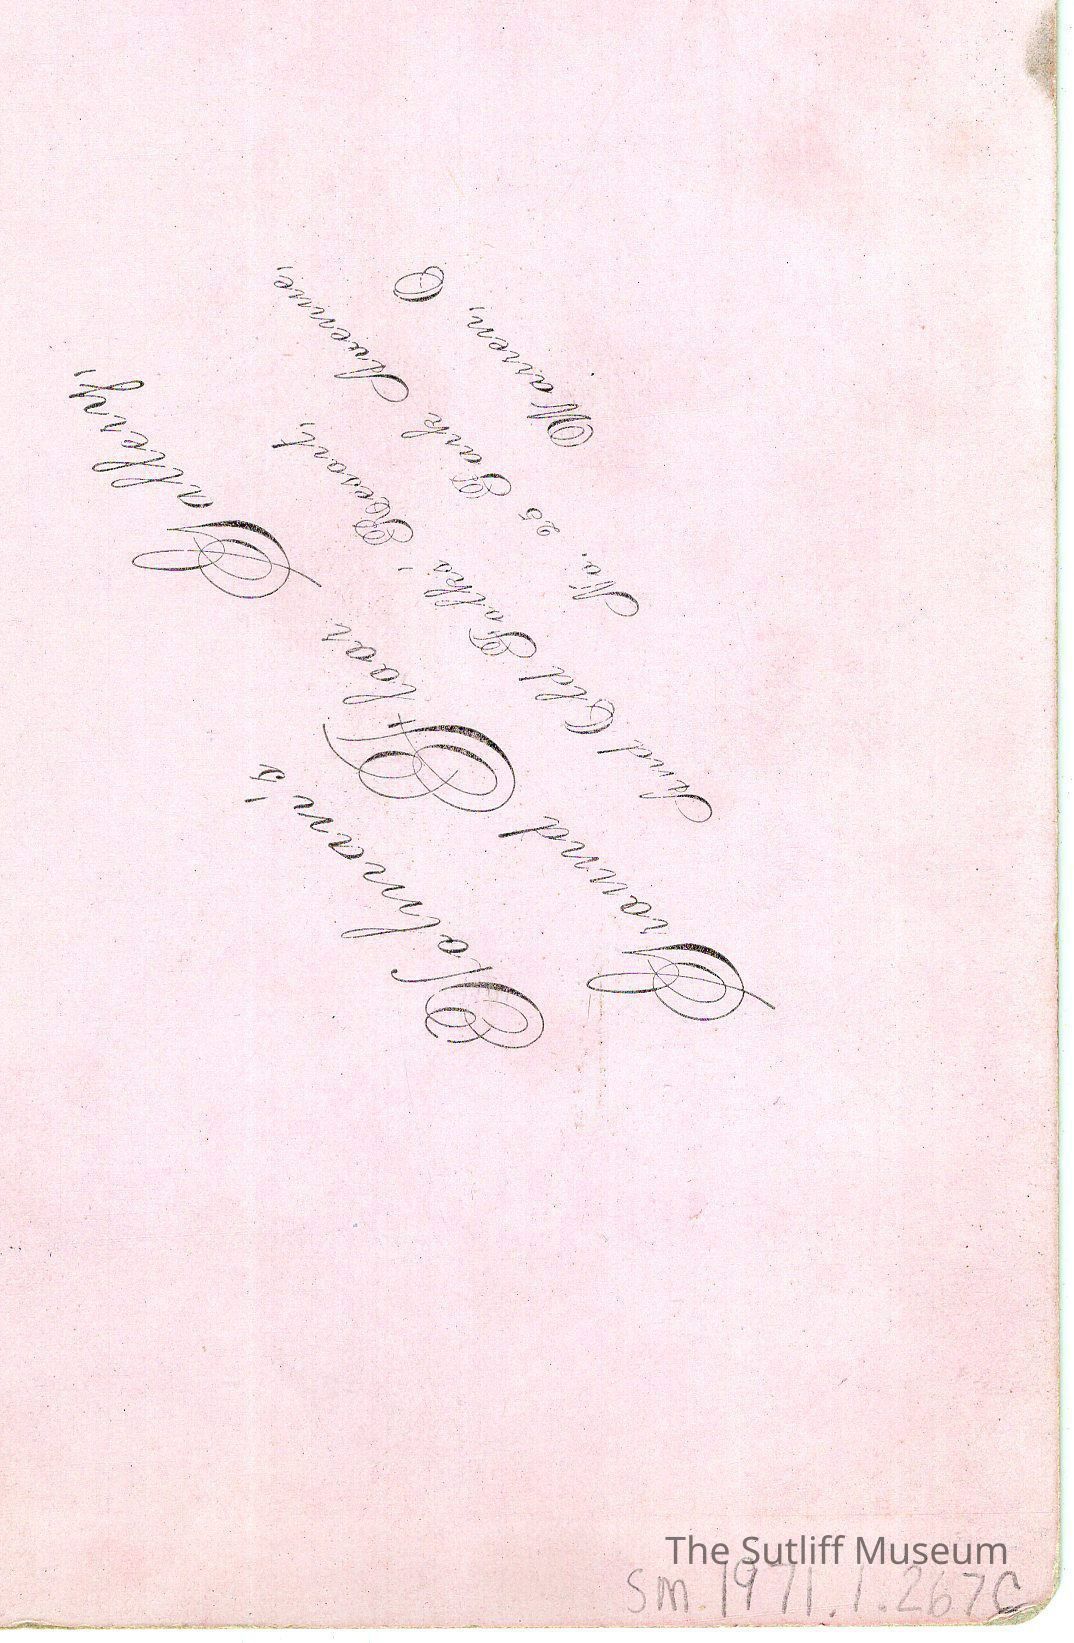 Holman's
Ground Floor Gallery,
And Old Folks' Resort,
No. 25 Park Avenue,
Warren, O
The Sutliff Museum
SM.1971.1.267C